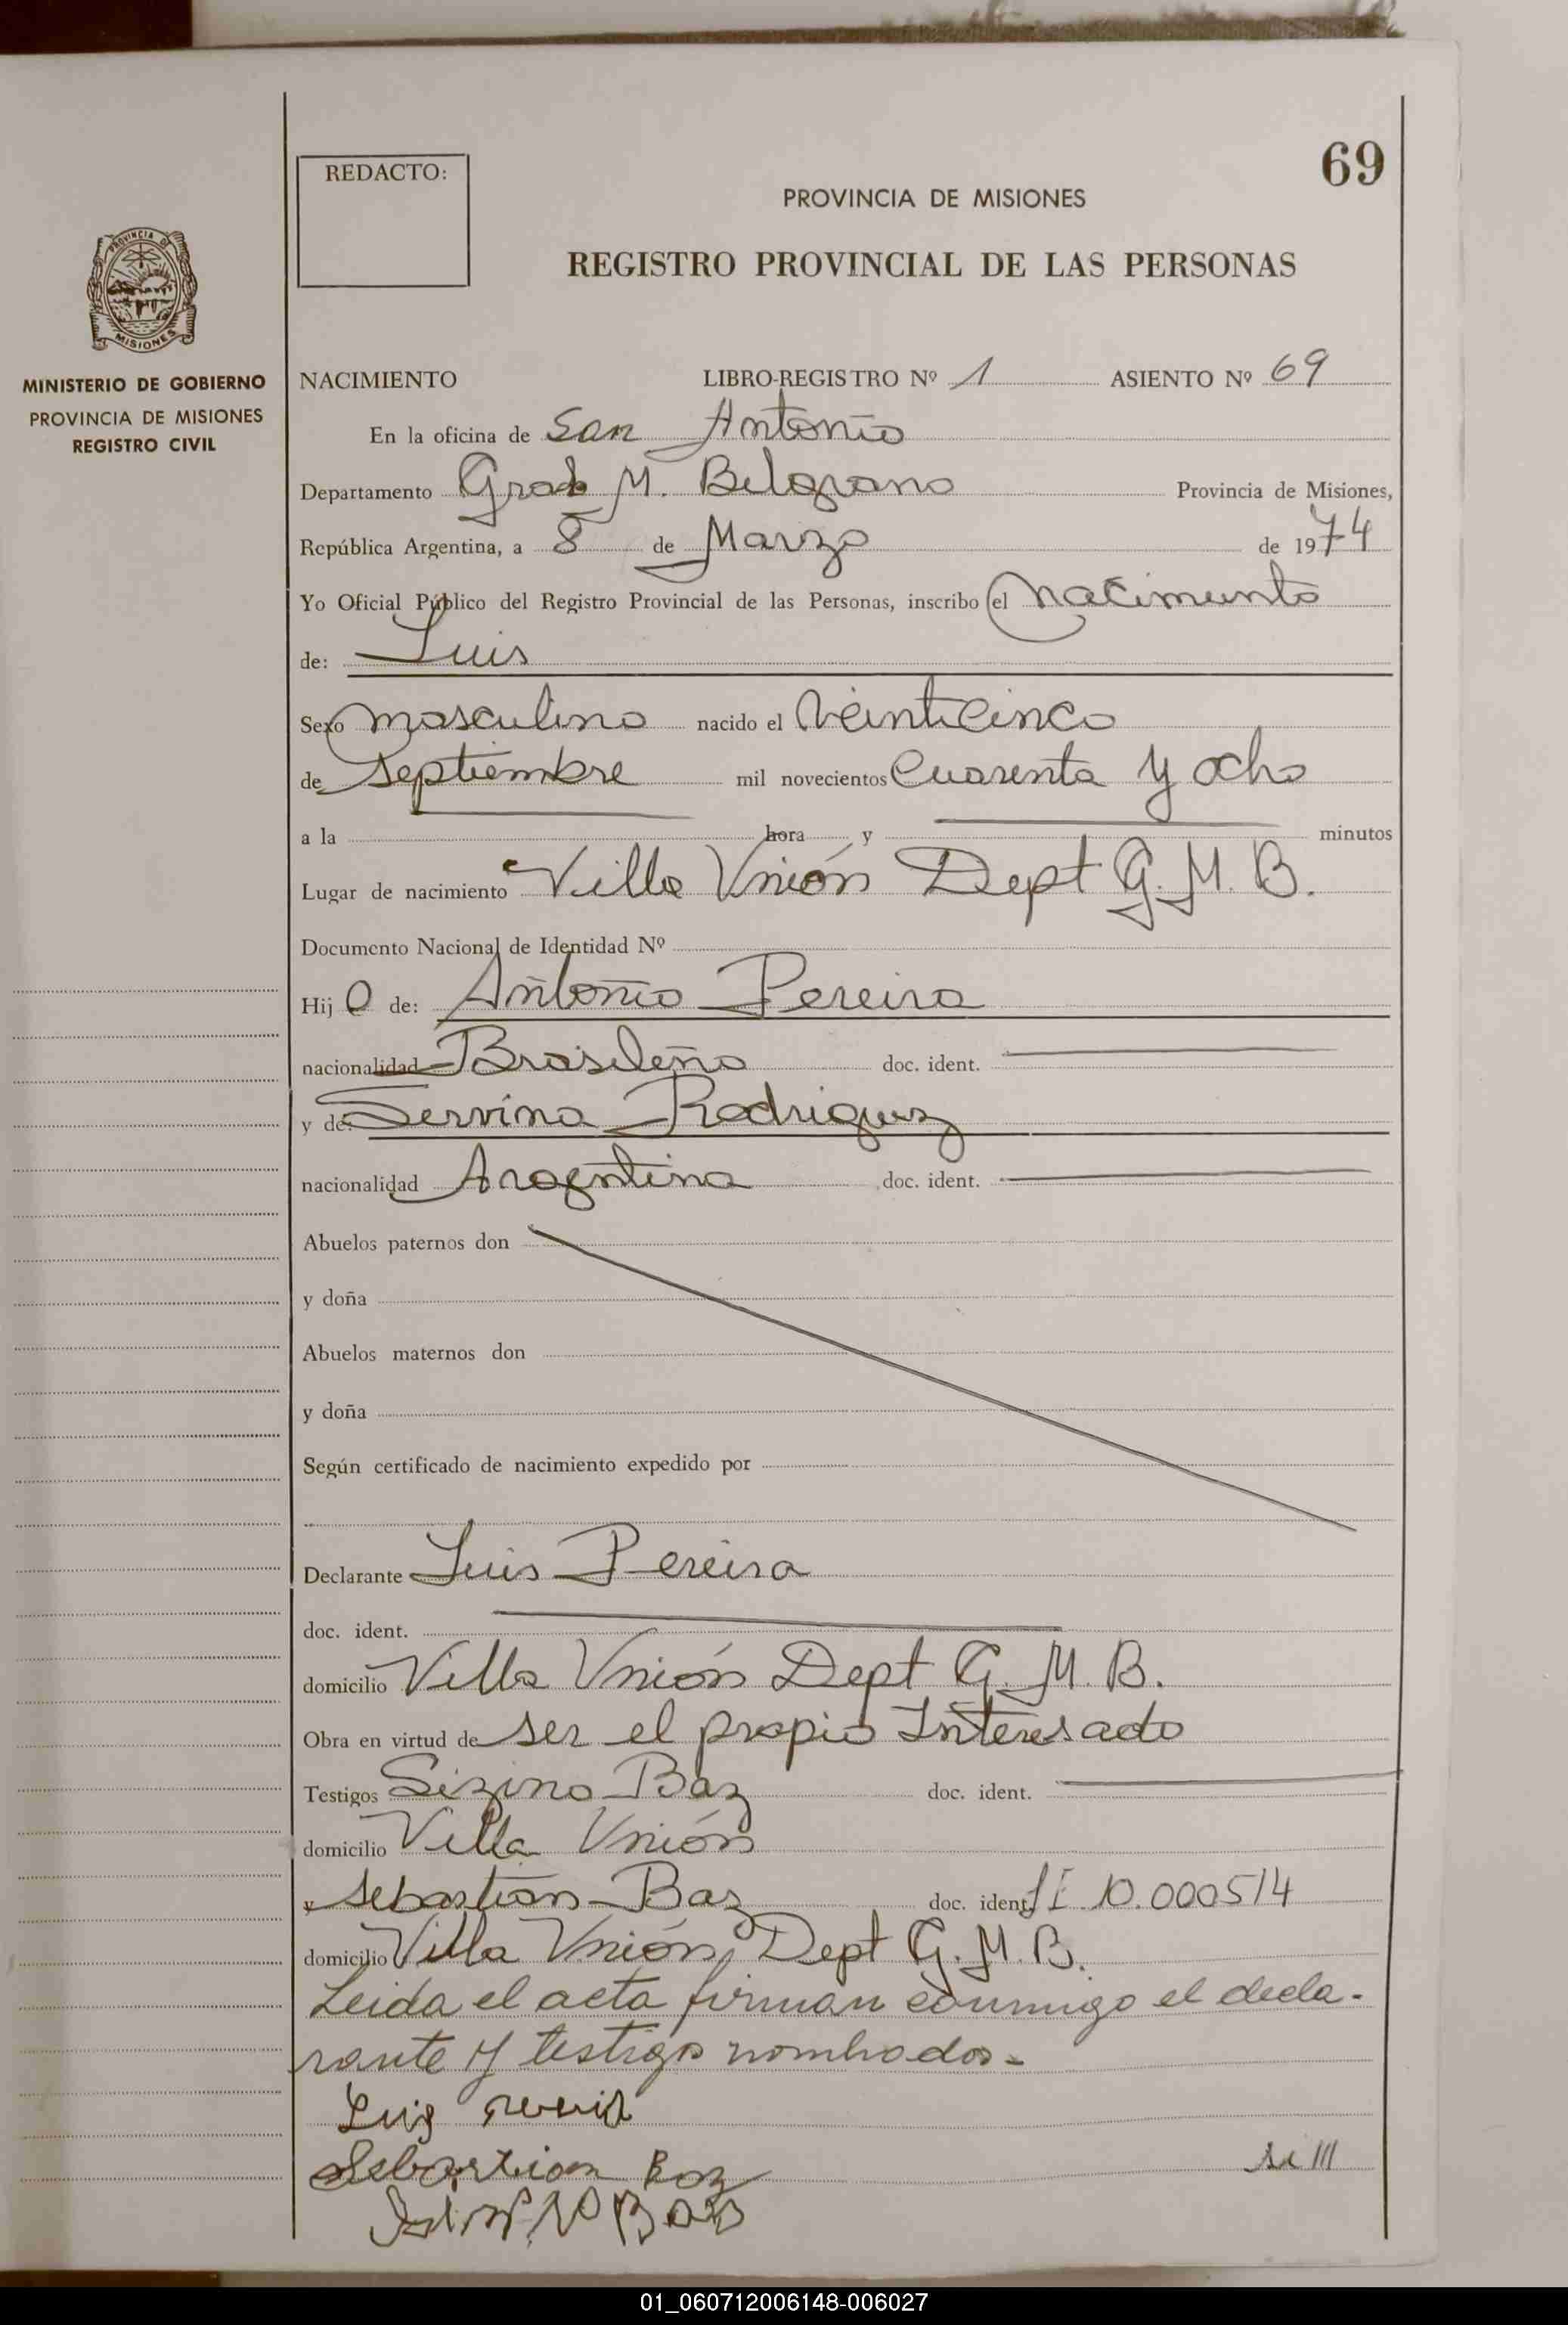 69
REDACTO:
PROVINCIA DE MISIONES
REGISTRO PROVINCIAL DE LAS PERSONAS
PROVINCIA D
MISIONES
MINISTERIO DE GOBIERNO
PROVINCIA DE MISIONES
REGISTRO CIVIL
NACIMIENTO LIBRO-REGISTRO Nº 1 ASIENTO Nº 69
En la oficina de San Antonio
Departamento Gral M. Belgrano Provincia de Misiones,
República Argentina, a 8 de Marzo de 1974
Yo Oficial Público del Registro Provincial de las Personas, inscribo el nacimiento
de: Luis
Sexo masculino nacido el veinticinco
de septiembre mil novecientos cuarenta y ocho
a la hora y minutos
Lugar de nacimiento Villa Unión Dept G. M. B.
Documento Nacional de Identidad Nº
Hij o de: Antonio Pereira
nacionalidad Brasileño doc. ident.
y de: Servina Rodriguez
nacionalidad Argentina doc. ident.
Abuelos paternos don
y doña
Abuelos maternos don
y doña
Según certificado de nacimiento expedido por
Declarante Luis Pereira
doc. ident.
domicilio Villa Unión Dept G. M. B.
Obra en virtud de ser el propio Interesado
Testigos Sizino Baz doc. ident.
domicilio Villa Unión
y Sebastián Baz doc. ident. 10.000514
domicilio Villa Unión, Dept G. M. B.
Leida el acta firman conmigo el decla-
rante y testigos nombrados-
Luis
Sebastian Boz
01_060712006148-006027